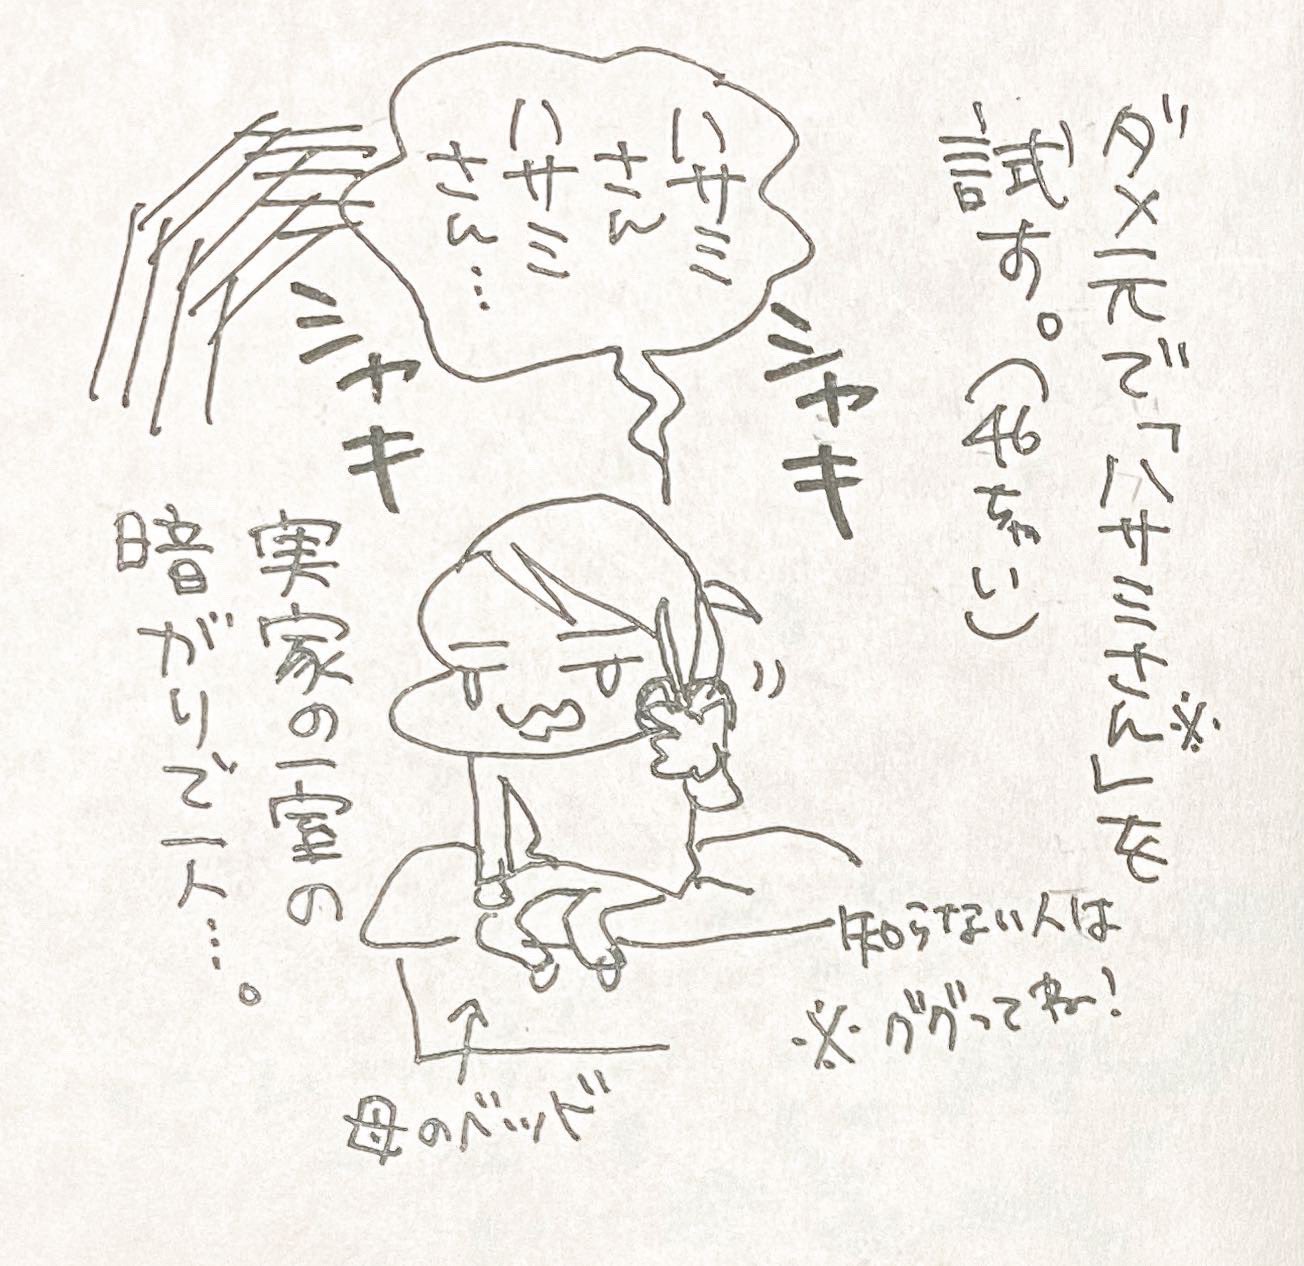 ダメ元で「ハサミさん」を※
試す。(46ちゃい)
ハサミ
さん
ハサミ
さん…
シャキ
シャキ
知らない人は
※ググってね!
実家の一室の
暗がりで一人…。
母のベッド